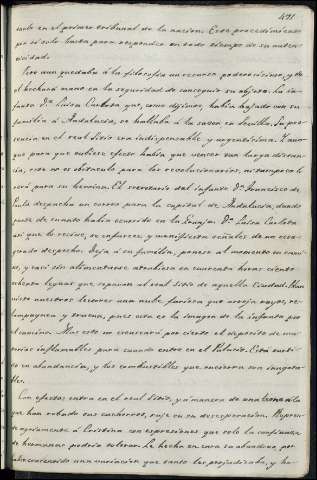 491
en el primer tribunal de la nacion. Este procedimiento
por sí solo basta para responder en todo tiempo de su auten-
ticidad.
Pero aun quedaba á la filosofia un recurso poderosisimo, y de
él hechará mano en la seguridad de conseguir su objeto. La in-
fanta Dª Luisa Carlota que, como dijimos, habia bajado con su
familia á Andalucia, se hallaba á la sazon en Sevilla. Su pre-
sencia en el real Sitio era indispensable y urgentisima. Y aun-
que para que tubiese efecto habia que vencer una larga distan-
cia, esto no es obstáculo para los revolucionarios, ni tampoco lo
será para su heroina. El secretario del infante Dn Francisco de
Paula despacha un correo para la capital de Andalucia, dando
parte de cuanto habia ocurrido en la Granja. Dª Luisa Carlota
asi que lo recive, se enfurece y manifiesta señales de un exa-
gerado despecho. Deja á su familia, ponese al momento en cami-
no, y casi sin alimentarse atraviesa en cuarenta horas ciento
ochenta leguas que separan al real Sitio de aquella Ciudad.
nuestros lectores una nube furiosa que arroja rayos, re-
lampaguea y truena, pues esta es la imagen de la infanta por
el camino. Mas esto no escuseará por cierto el deposito de ma-
terias inflamables para cuando entre en el Palacio. Está surti-
da en abundancia, y los combustibles que encierra son inagota-
bles.
Con efecto entra en el real Sitio, y á manera de una leona á la
que han robado sus cachorros, ruje en su desesperacion. Repren-
de agriamente á Cristina con expresiones que solo la confianza
de hermanas podria tolerar. Le hecha en cara su abandono, por
haber consentido una variacion que tanto las perjudicaba, y ha-